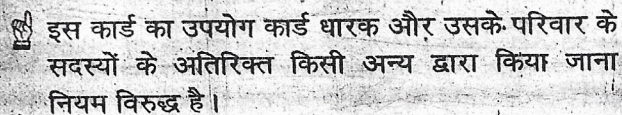 इस कार्ड का उपयोग कार्ड धारक और उसके परिवार के
सदस्यों के अतिरिक्त किसी अन्य द्वारा किया जाना
नियम विरुद्ध है।